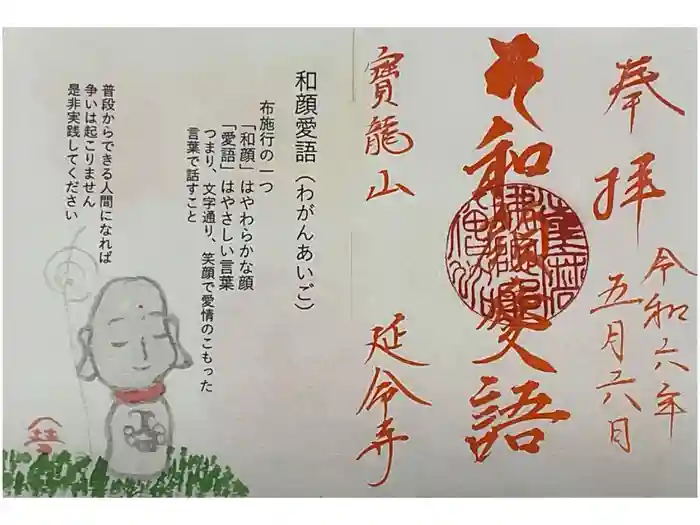 奉拝
令和六年
五月六日
和顔愛語
寶龍山
延命寺
和顔愛語（わがんあいご）
布施行の一つ
「和顔」はやわらかな顔
「愛語」はやさしい言葉
つまり、文字通り、笑顔で愛情のこもった
言葉で話すこと
普段からできる人間になれば
争いは起こりません
是非実践してください